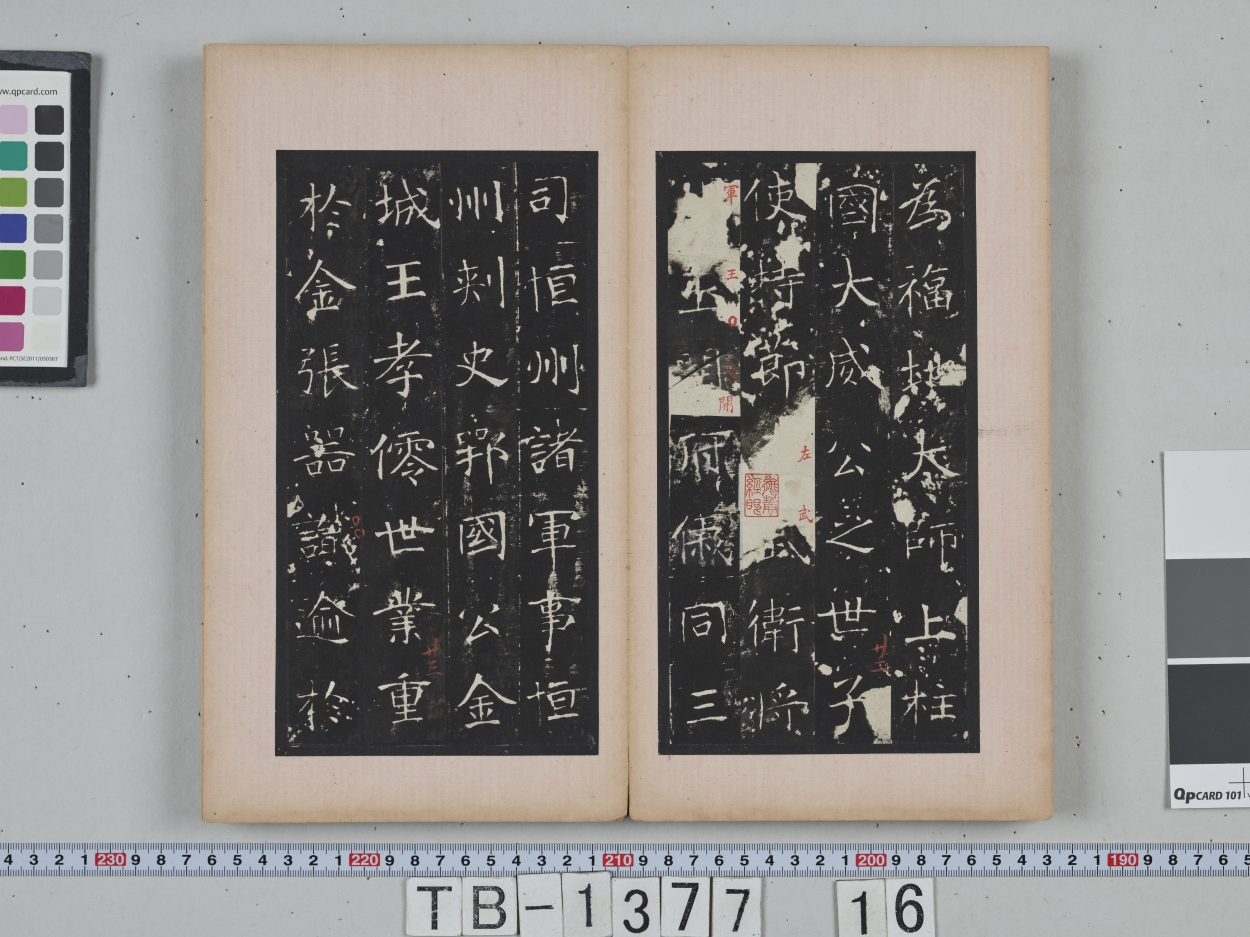 為福地大師上柱
國大威公之世子
使持節 左武衛將
軍 上 開府儀同三
司恒州諸軍事恒
州刾史鄂國公金
城王孝僊世業重
扵金張器識逾扵
軍
王
開
左
武
廿二
廿三
ww.qpcard.com
QPCARD 101
4 3 2 1 230 9 8 7 6 5 4 3 2 1 220 9 8 7 6 5 4 3 2 1 210 9 8 7 6 5 4 3 2 1 200 9 8 7 6 5 4 3 2 1 190 9 8 7 6 5
TB-1377 16